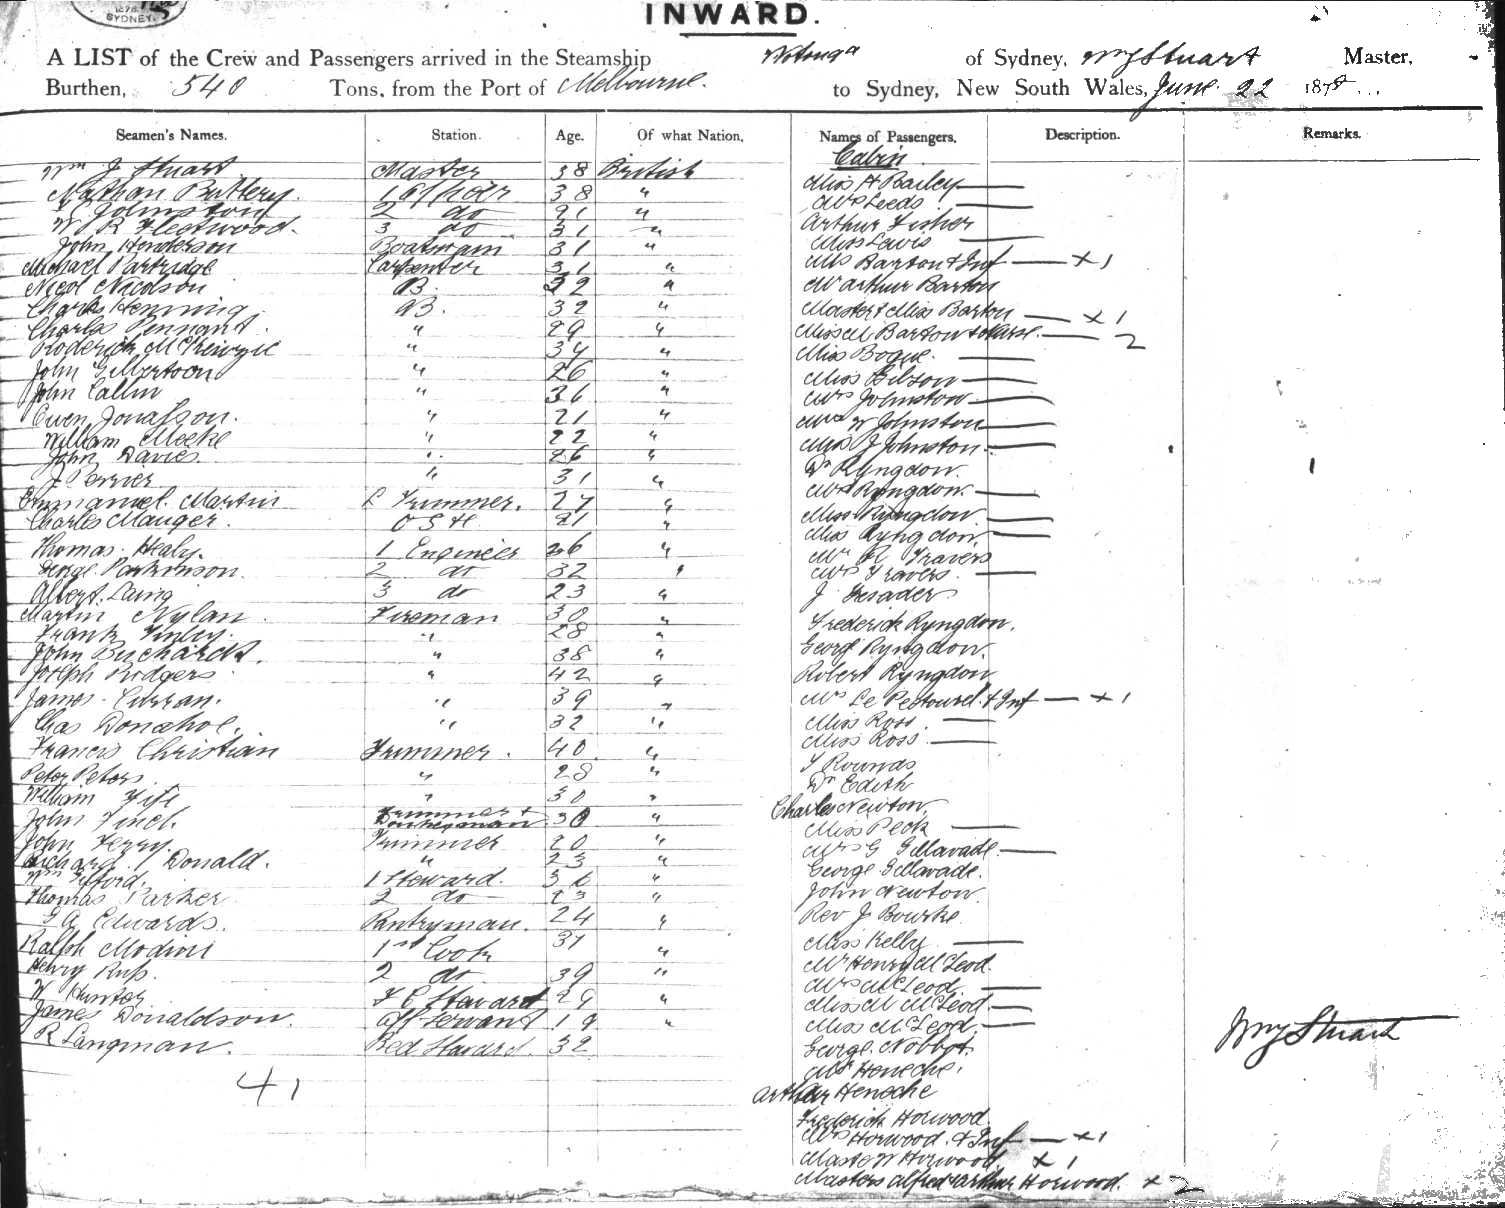 SYDNEY
INWARD.
A LIST of the Crew and Passengers arrived in the Steamship Wotonga of Sydney, Wm J Stuart Master,
Burthen, 540 Tons, from the Port of Melbourne. to Sydney, New South Wales, June 22 1878
Seamen's Names. Station. Age. Of what Nation. Names of Passengers. Description. Remarks.
Wm J Stuart Master 38 British
Nathan Buttery. 1 Officer 38 "
Johnston 2 do 21 "
W R Fleetwood. 3 do 31 "
John Henderson Boatswain 31 "
Michael Partridge Carpenter 31 "
Nicol Nicolson AB. 32 "
Charles Henning AB. 32 "
Charles Pennant. " 29 "
Roderick " 34 "
John Gilbertson " 26 "
John Callin " 36 "
Owen Jonasson. " 21 "
William Meeke " 22 "
John Davies. " 26 "
J Perrier " 31 "
Emmanuel Martin Trimmer. 27 "
Charles Mauger. 21 "
Thomas Healy. 1 Engineer 36 "
George Parkinson. 2 do 32 "
Albert Laing 3 do 23 "
Martin Nylan Fireman 30 "
Frank Finley. " 28 "
John Buchards. " 38 "
Joseph Rodgers " 42 "
James Curran. " 39 "
Chas Donahoe. " 32 "
Francis Christian Trimmer. 40 "
Peter Peters. " 28 "
William Fife " 30 "
John Finch. Trimmer & Donkeyman 30 "
John Ferry. Trimmer 20 "
Richard Donald. " 23 "
Wm Gifford. 1 Steward. 36 "
Thomas Parker 2 do 23 "
G A Edwards. Pantryman. 24 "
Ralph Modini 1st Cook 31 "
Henry 2 do 39 "
W Hunter F C Steward 29 "
James Donaldson. Off servant 19 "
R Langman. Bed Steward. 32
41
Cabin
Miss H Bailey
Mrs Leeds
Arthur Fisher
Miss Lewis
Mrs Barton & Inf x 1
Mr Arthur Barton
Master & Miss Barton x 1
Miss M Barton & Nurse. 2
Miss Bogue.
Miss Gibson
Mrs Johnston
Mrs W Johnston
Miss J Johnston
Dr Ryngdon.
Mrs Ryngdon.
Miss Ryngdon.
Miss Ryngdon
Mr R Travers
Mrs Travers.
J
Frederick Ryngdon.
George Ryngdon.
Robert Ryngdon
Mrs Le Pestourel & Inf x 1
Miss Ross.
Miss Ross.
Rounds
Dr Edith
Charles Newton.
Miss Peck
Mrs G Gillavade.
George Gillavade.
John Newton.
Rev J Bourke.
Miss Kelly
Mr Henry McLeod.
Mrs McLeod.
Miss M McLeod.
Miss McLeod.
George
Mrs Heneche.
Arthur Heneche
Frederick Horwood.
Mrs Horwood. & Inf x 1
Master W Horwood x 1
Masters Alfred & Arthur Horwood. x 2
Wm J Stuart